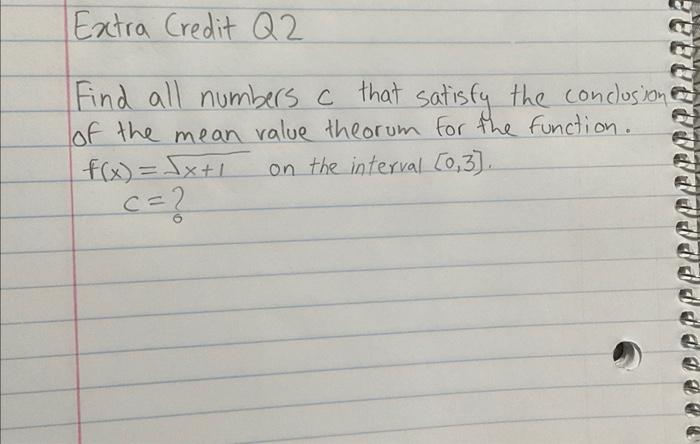 Extra Credit Q2
Find all numbers c that satisfy the conclusion
of the mean value theorum for the function.
f(x) = √x+1 on the interval [0,3].
c = ?